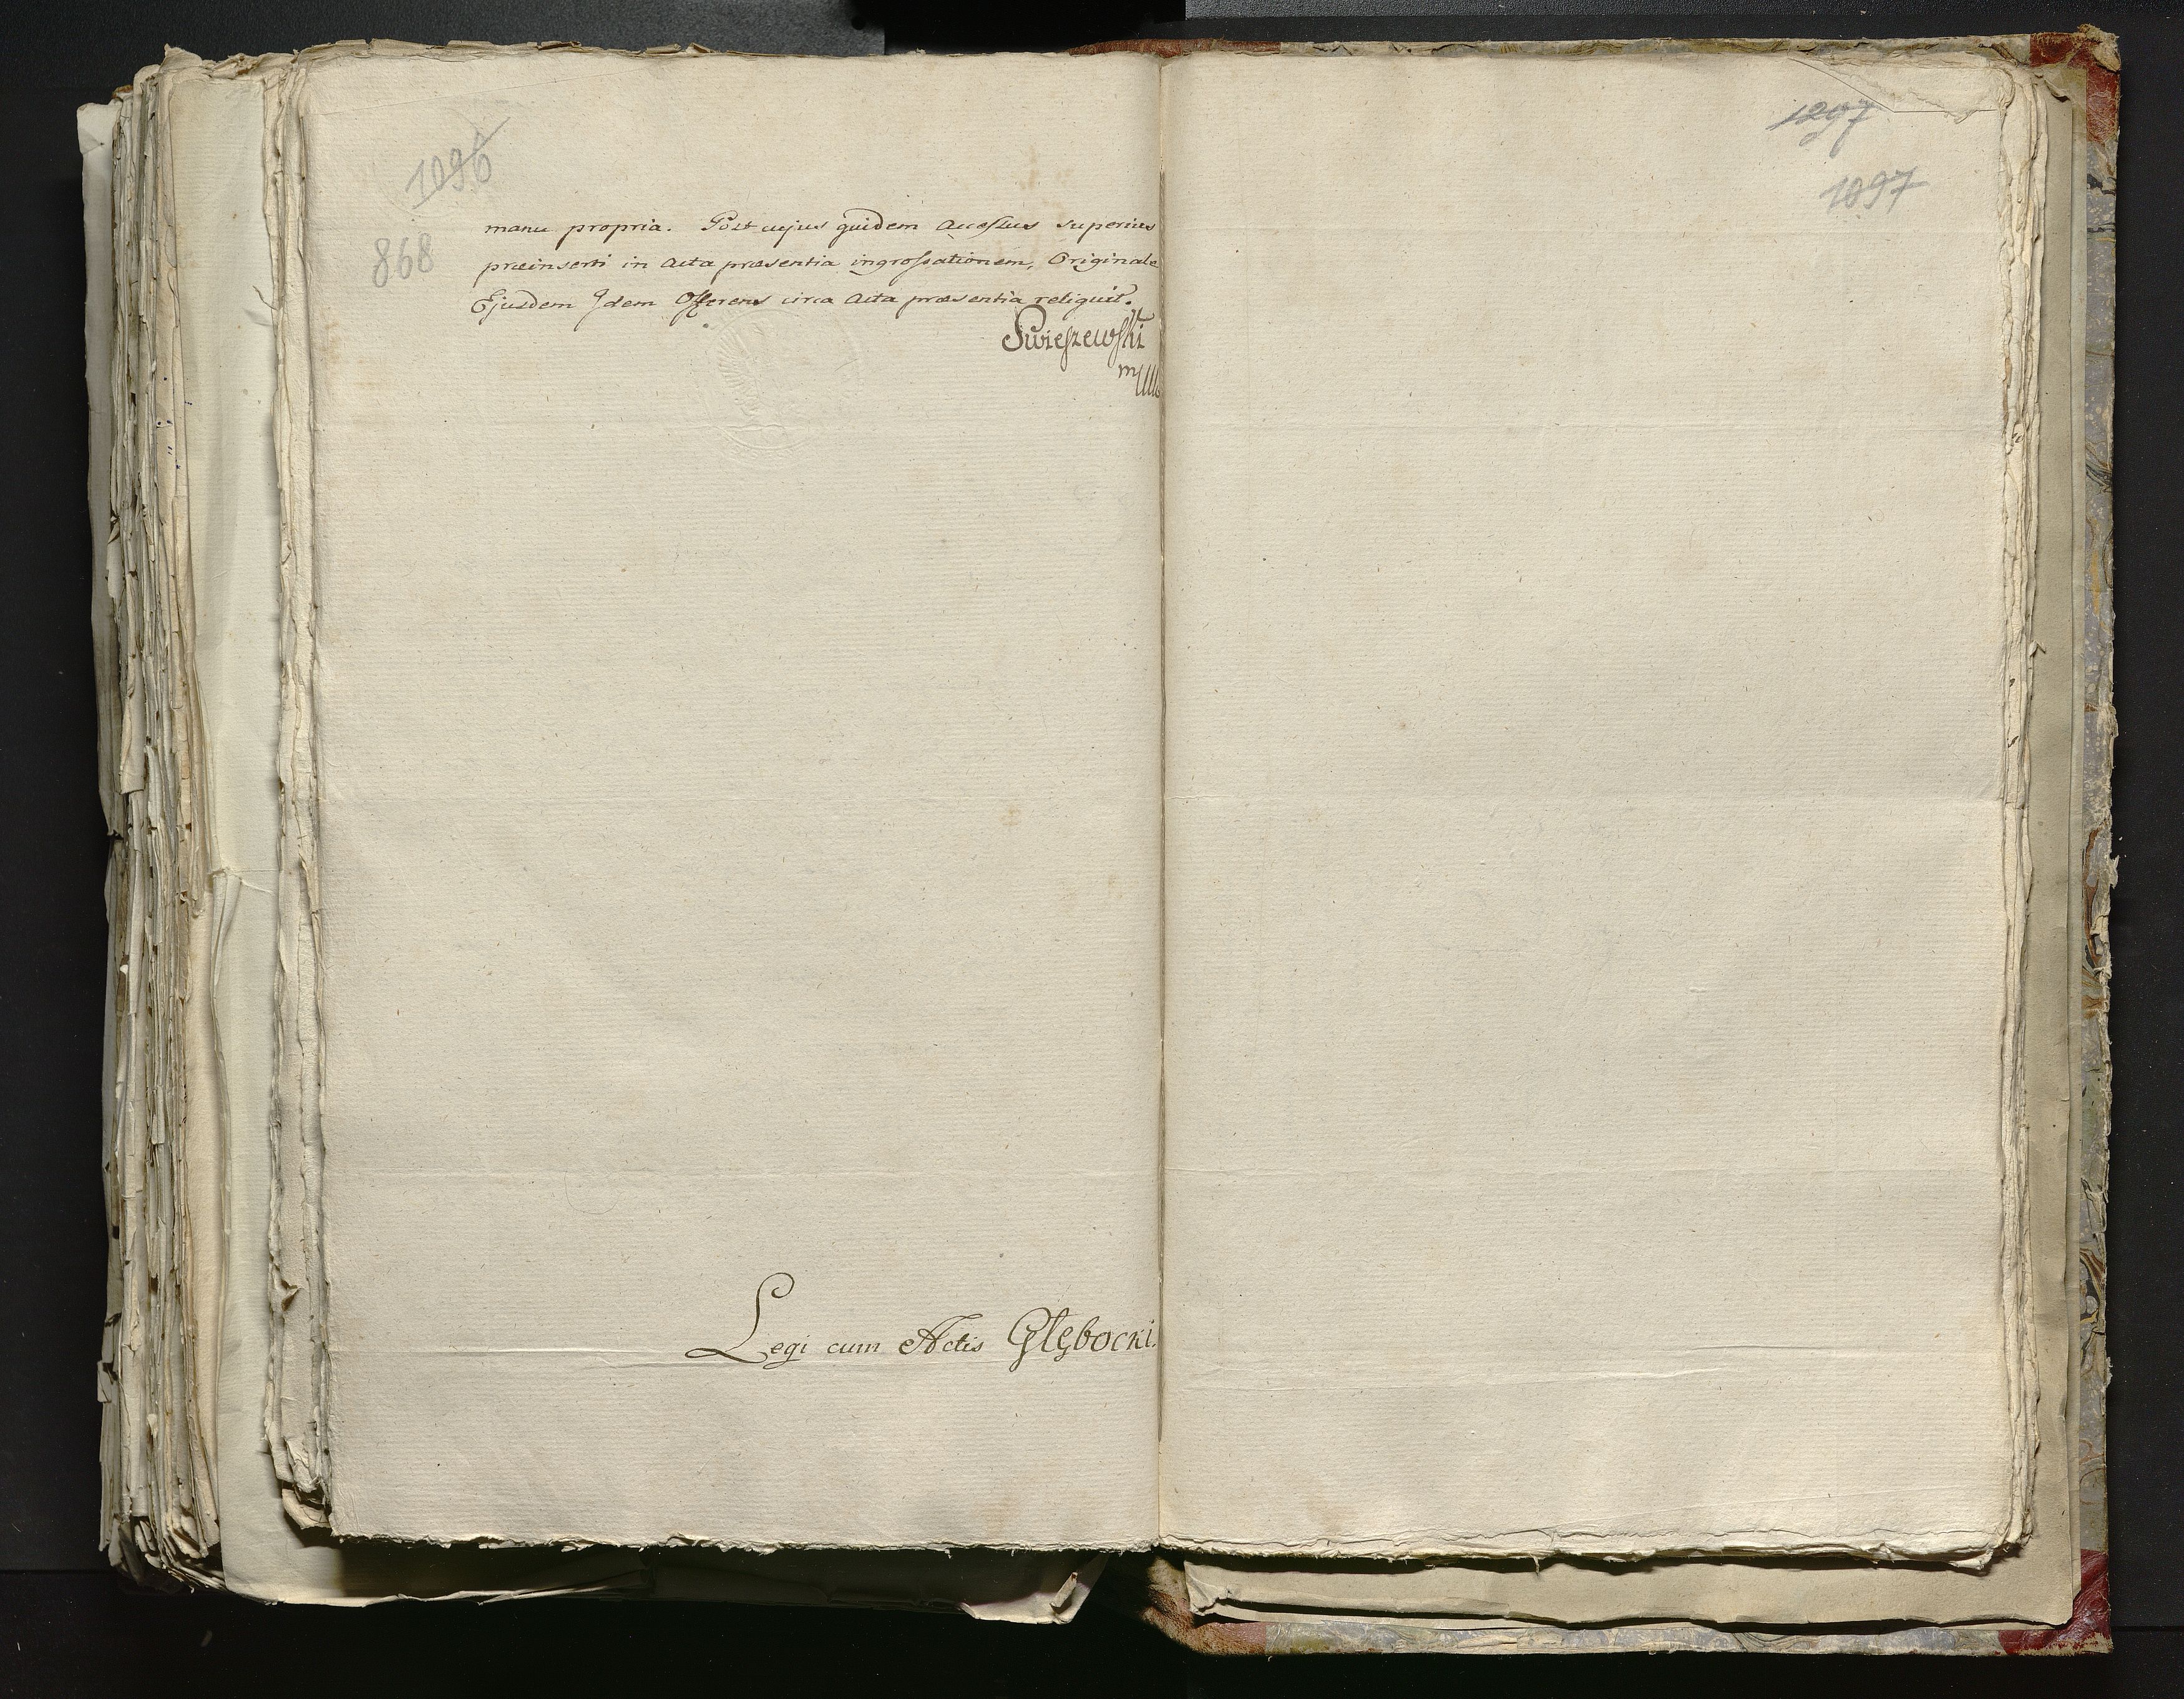 1096
868
manu propria. Post cujus quidem Accessus superius
præinserti in Acta præsentia ingrossationem, Originale
Ejusdem Idem Offerens circa Acta præsentia reliquit.
Swieszewski
Legi cum Actis Głębocki.
1297
1097